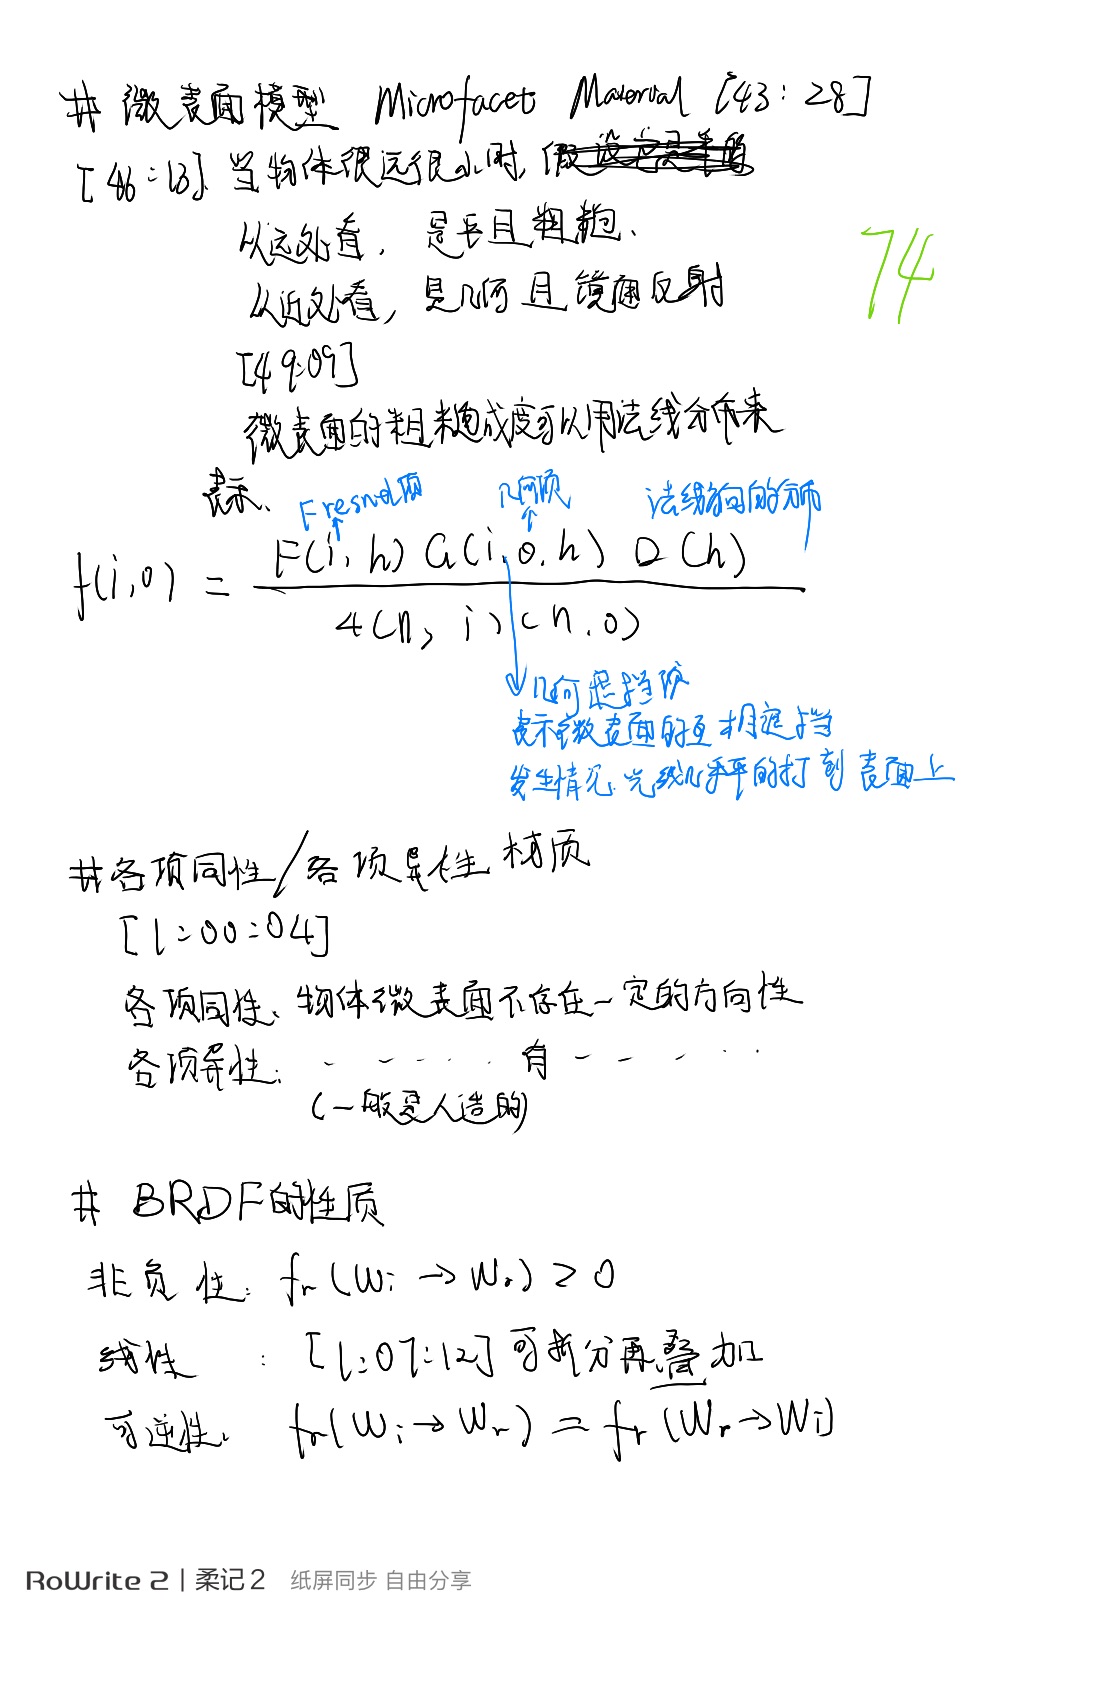 # 微表面模型 Microfacet Material [43:28]
[46:13] 当物体很远很小时, 假设它是平的
从远处看, 是平且粗糙.
从近处看, 是几何且镜面反射
74
[49:09]
微表面的粗糙成度可以用法线分布来
表示.
Fresnel项 几何项 法线方向的分布
f(i,o) = F(i, h) G(i, o, h) D(h)
4(n, i)(n, o)
几何遮挡项
表示微表面的互相遮挡
发生情况: 光线几乎平的打到表面上
#各项同性/各项异性材质
[1:00:04]
各项同性: 物体微表面不存在一定的方向性
各项异性: - - - - - 有 - - - - -
(一般是人造的)
# BRDF的性质
非负性: fr(Wi → Wr) ≥ 0
线性 : [1:07:12] 可拆分再叠加
可逆性: fr(Wi → Wr) = fr(Wr → Wi)
RoWrite 2 | 柔记 2 纸屏同步 自由分享